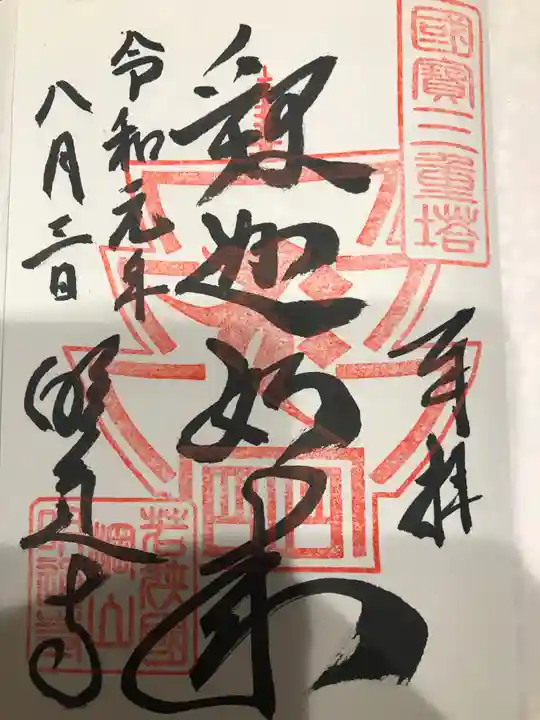 國寶三重塔
奉拝
釋迦如来
令和元年
八月三日
明通寺
若狭國
棡山
明通寺